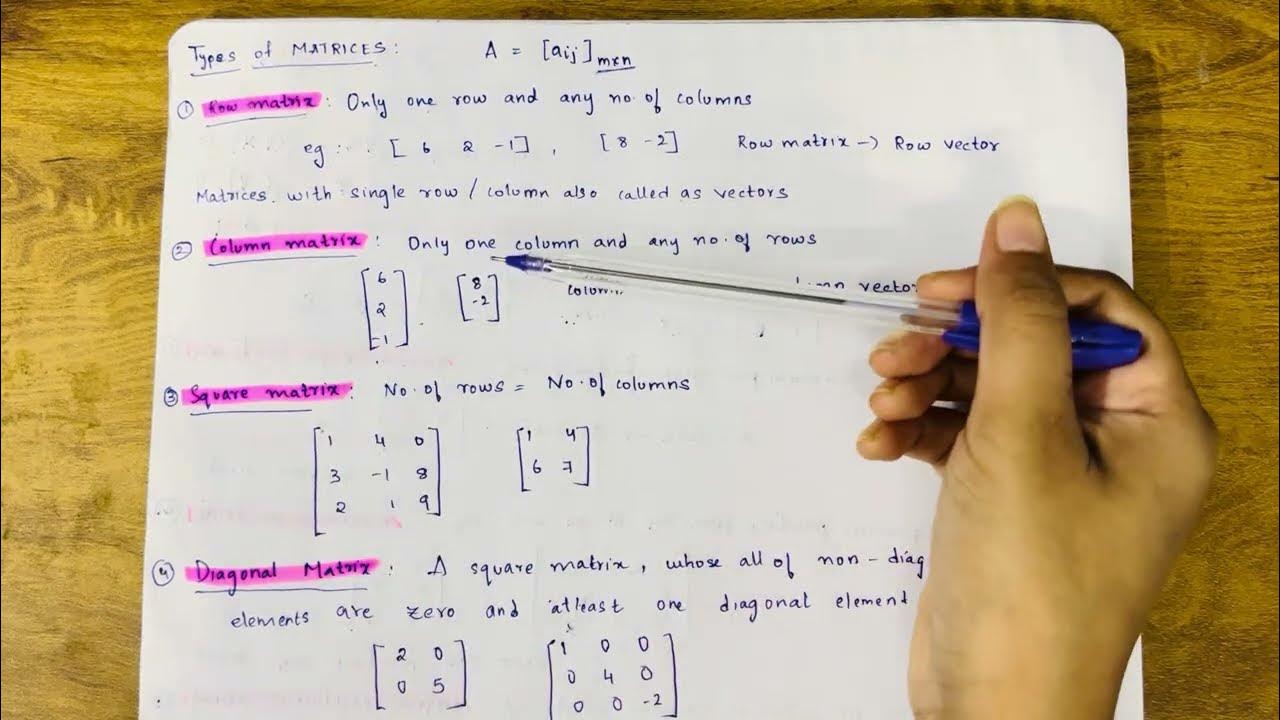 Types of MATRICES: A = [aij]mxn
① Row matrix: Only one row and any no. of columns
eg: [ 6 2 -1], [8 -2] Row matrix -> Row vector
Matrices with single row / column also called as vectors
② Column matrix: Only one column and any no. of rows
[6 [8 vector
2 -2]
-1]
③ Square matrix: No. of rows = No. of columns
[1 4 0 [1 4
3 -1 8 6 7]
2 1 9]
④ Diagonal Matrix: A square matrix, whose all of non-diag
elements are zero and atleast one diagonal element
[2 0 [1 0 0
0 5] 0 4 0
0 0 -2]